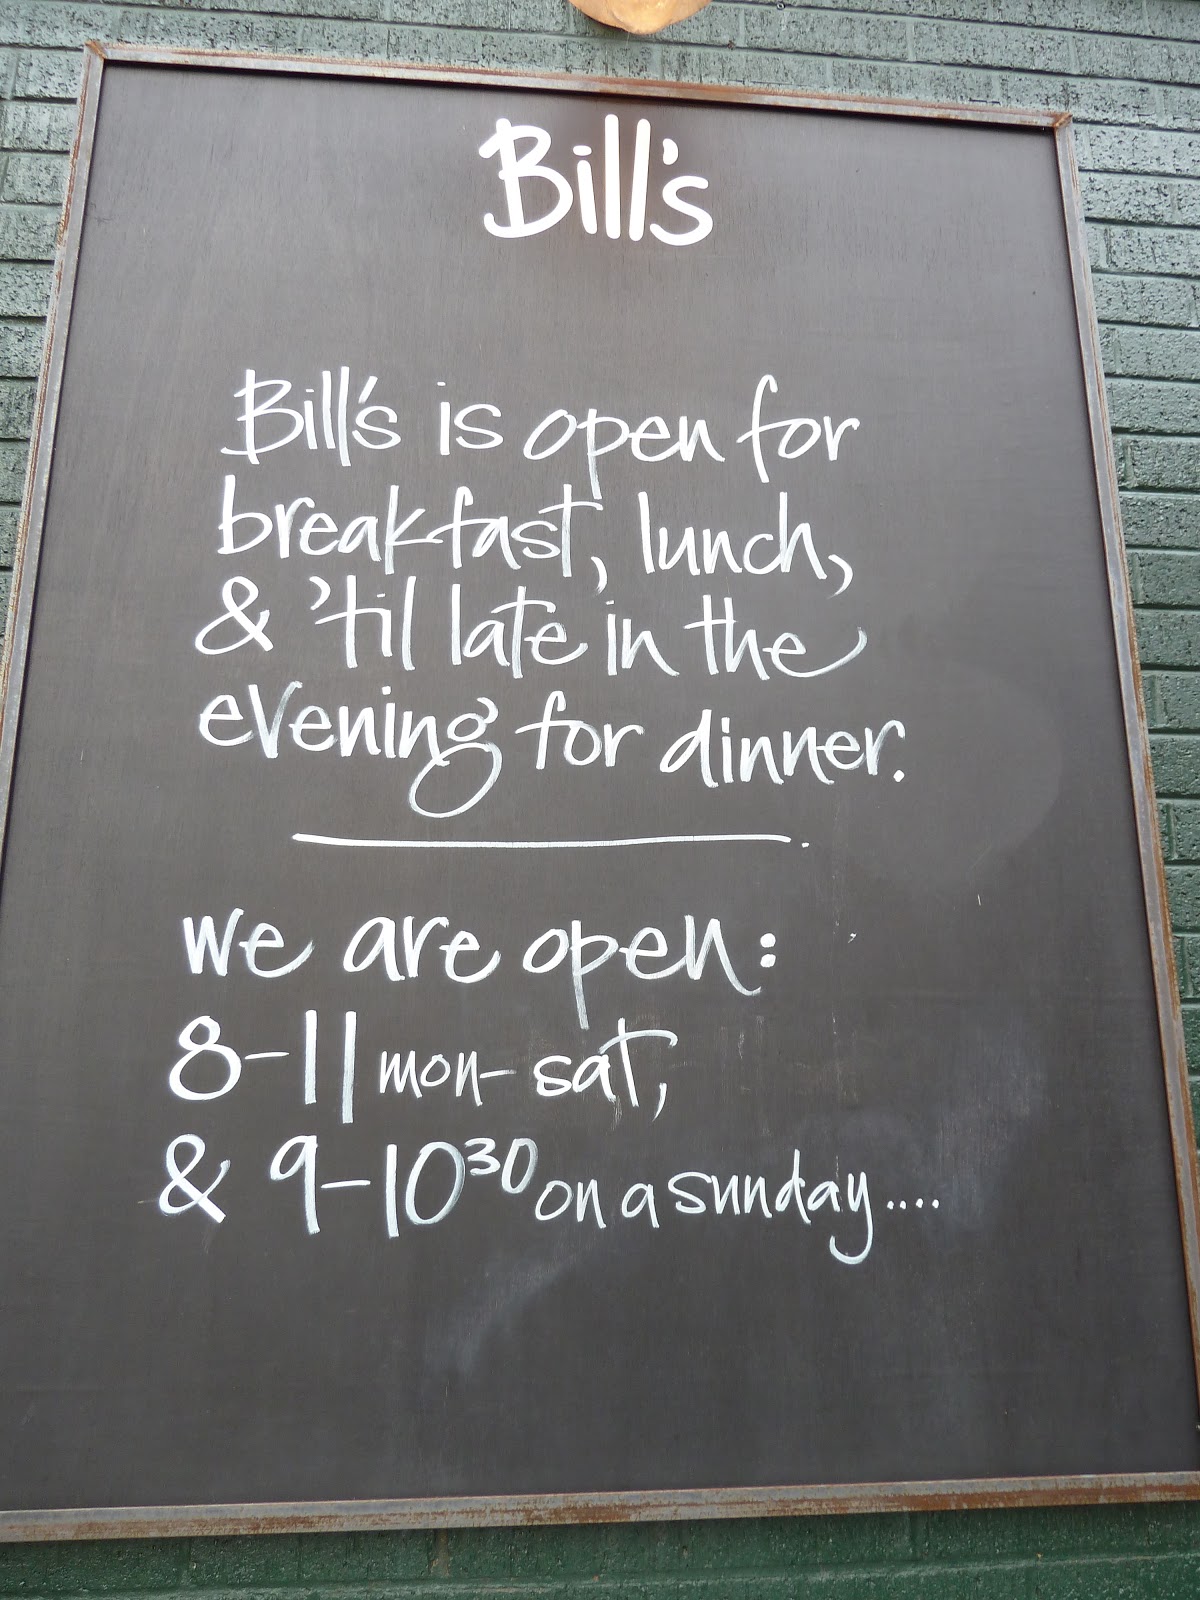 Bill's
Bill's is open for
breakfast, lunch,
& 'til late in the
evening for dinner.
we are open:
8-11 mon- sat,
& 9-10³⁰ on a sunday....